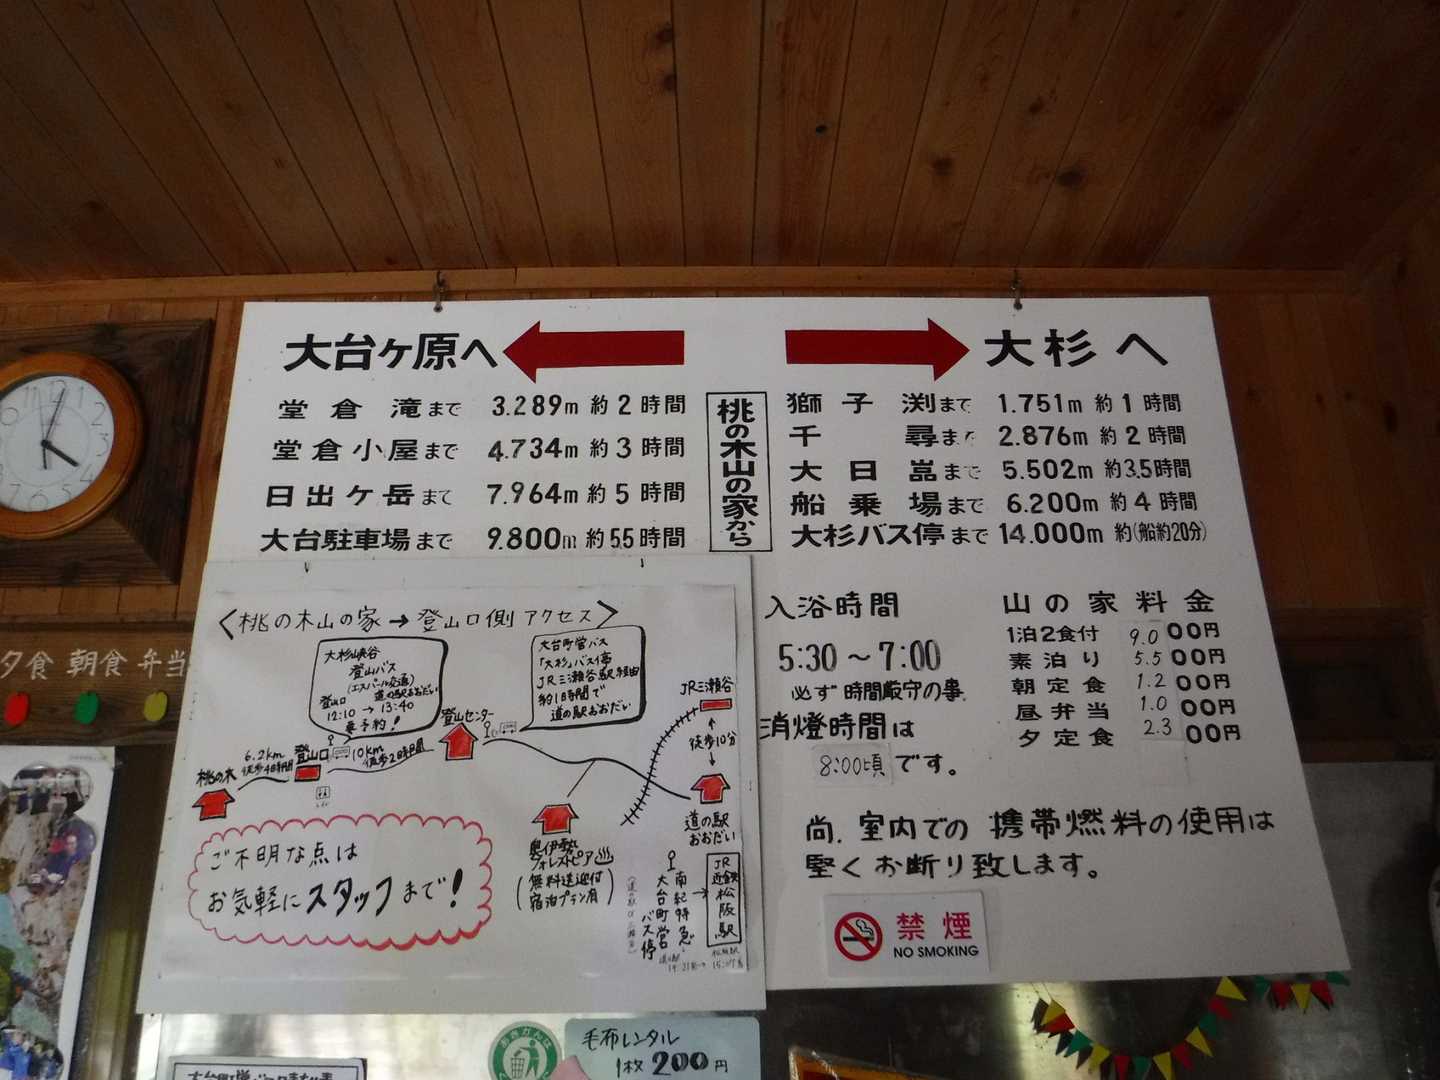 大台ヶ原へ
大杉へ
堂倉滝まで 3.289m 約2時間
堂倉小屋まで 4.734m 約3時間
日出ヶ岳まで 7.964m 約5時間
大台駐車場まで 9.800m 約5.5時間
桃の木山の家から
獅子渕まで 1.751m 約1時間
千尋まで 2.876m 約2時間
大日嵓まで 5.502m 約3.5時間
船乗場まで 6.200m 約4時間
大杉バス停まで 14.000m 約(船約20分)
入浴時間
5:30～7:00
必ず時間厳守の事
消燈時間は
8:00頃です。
山の家料金
1泊2食付 9.000円
素泊り 5.500円
朝定食 1.200円
昼弁当 1.000円
夕定食 2.300円
尚、室内での携帯燃料の使用は
堅くお断り致します。
禁煙
NO SMOKING
<桃の木山の家→登山口側アクセス>
大杉峡谷
登山バス
(エスパール交通)
登山口 道の駅おおだい
12:10→13:40
要予約!
大台町営バス
「大杉」バス停
JR三瀬谷駅経由
約1時間で
道の駅おおだい
JR三瀬谷
徒歩10分
登山センター
6.2km
徒歩4時間
登山口
10km
徒歩2時間
桃の木
道の駅
おおだい
奥伊勢
フォレストピア
(無料送迎付
宿泊プラン有)
大台町営バス停
南紀特急
JR
近鉄
松阪駅
ご不明な点は
お気軽にスタッフまで!
夕食 朝食 弁当
毛布レンタル
1枚200円
12
1
2
3
11